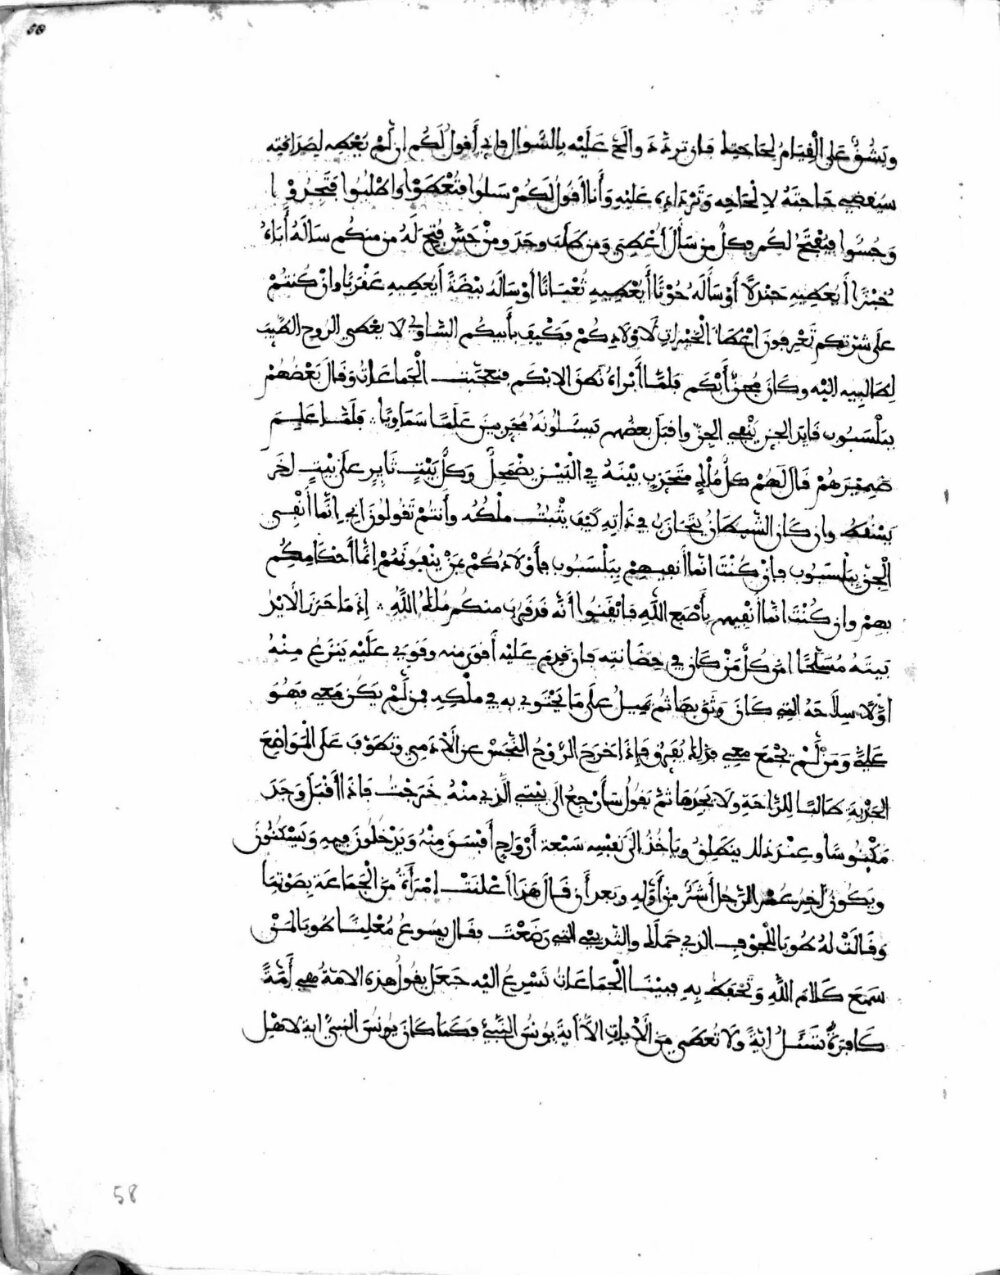 58
ويشق على القيام لحاجتك فان تردد والح عليه بالسوال فاني أقول لكم ان لم يعطه لصداقته
سيقضي حاجته لالحاحه وترداده عليه وأنا أقول لكم سلوا فتعطوا واطلبوا فتجدوا
وحسوا فيفتح لكم فكل من سأل أعطي ومن طلب وجد ومن حس فتح له من منكم ساله أباه
خبزا أيعطيه جندلا أو سأله حوتا أيعطيه ثعبانا أو ساله بيضة أيعطيه عقربا وان كنتم
على شرتكم تعرفون اعطا الخيرات لاولادكم فكيف بأبيكم السماوي لا يعطي الروح الطيب
لطالبيه اليه وكان يجن أبكم فلما أبراه نطق الابكم فتعجبت الجماعات وقال بعضهم
ببلسبوب قايد الجن ينفي الجن واقبل بعضهم تيسئلونه مجربين علما سماويا فلما علم
ضميرهم قال لهم كل ملك متحزب بينه في البين يضمحل وكل بيت ثاير على بيت اخر
يسقط وان كان الشيطان يتحازب في ذاته كيف يثبت ملكه وأنتم تقولون اني انما أنفي
الجن ببلسبوب فان كنت انما أنفيهم ببلسبوب فأولادكم بمن ينفونهم انما أحكامكم
بهم وان كنت انما أنفيهم بأصبع الله فايقنوا أنه قد قرب منكم ملك الله اذ ما حرز الايد
بيته مسلحا امن كل من كان في حضانته فان قدم عليه أقوى منه وقوي عليه ينزع منه
اولا سلاحه التي كان وثق بها ثم يميل على ما يحتوي به في ملكه فمن لم يكن معي فهو
علي ومن لم يجمع معي فذلك يفرق فإذا خرج الروح النجس عن الادمي وتطوف على المواضع
الحزنة طالبا للراحة ولا يجدها ثم يقول سأرجع الى بيتي الذي منه خرجت فاذا أقبل وجد
مكنوسا وعند ذلك ينطلق وياخذ الى نفسه سبعة أرواح أفسق منه ويدخلون فيه ويسكنون
ويكون اخر عمر الرجل أشر من أوله وبعد أن قال هذا أعلنت امرأة من الجماعة بصوتها
وقالت له طوبا للجوف الذي حملك والثديين التي رضعت فقال يسوع معلنا طوبا لمن
سمع كلام الله وتحفظ به فبينا الجماعات تسرع اليه جعل يقول هذه الامة هي أمة
كافرة تسئل اية ولا تعطى من الايات الا اية يونس النبي فكما كان يونس النبي اية لاهل
58